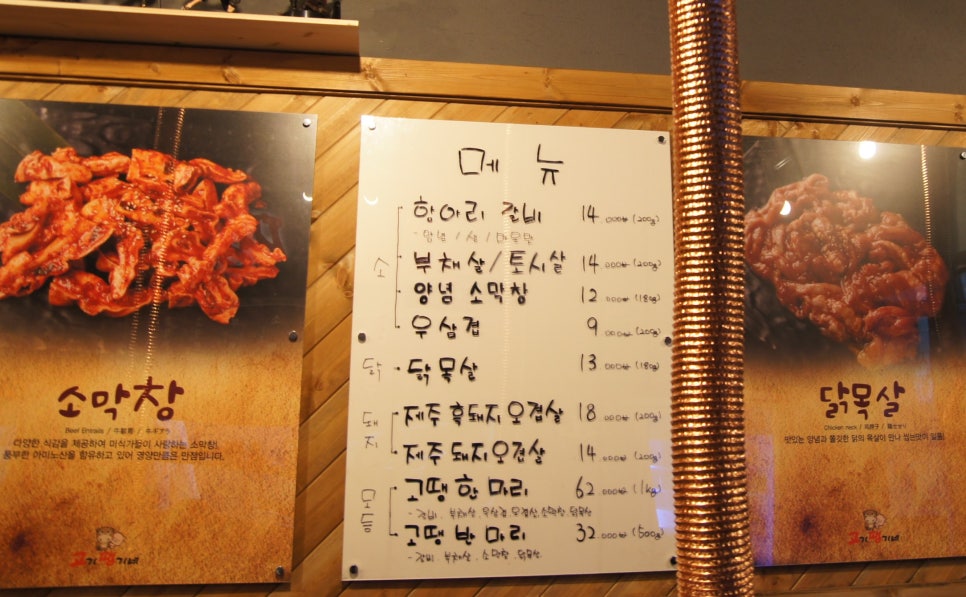 소막창
Beef Entrails
다양한 식감을 제공하여 미식가들이 사랑하는 소막창!
풍부한 아미노산을 함유하고 있어 영양만점은 만점입니다.
메뉴
소
항아리 갈비 14.000원 (200g)
부채살/토시살 14.000원 (200g)
양념 소막창 12.000원 (180g)
우삼겹 9.000원 (200g)
닭
닭목살 13.000원 (180g)
돼지
제주 흑돼지오겹살 18.000원 (200g)
제주 돼지오겹살 14.000원 (200g)
모듬
고땡 한 마리 62.000원 (1kg)
- 갈비. 부채살. 우삼겹. 오겹살. 소막창. 닭목살
고땡 반 마리 32.000원 (500g)
- 갈비. 부채살. 소막창. 닭목살
닭목살
Chicken neck
맛있는 양념과 쫄깃한 닭의 목살이 만나 씹는맛이 일품!